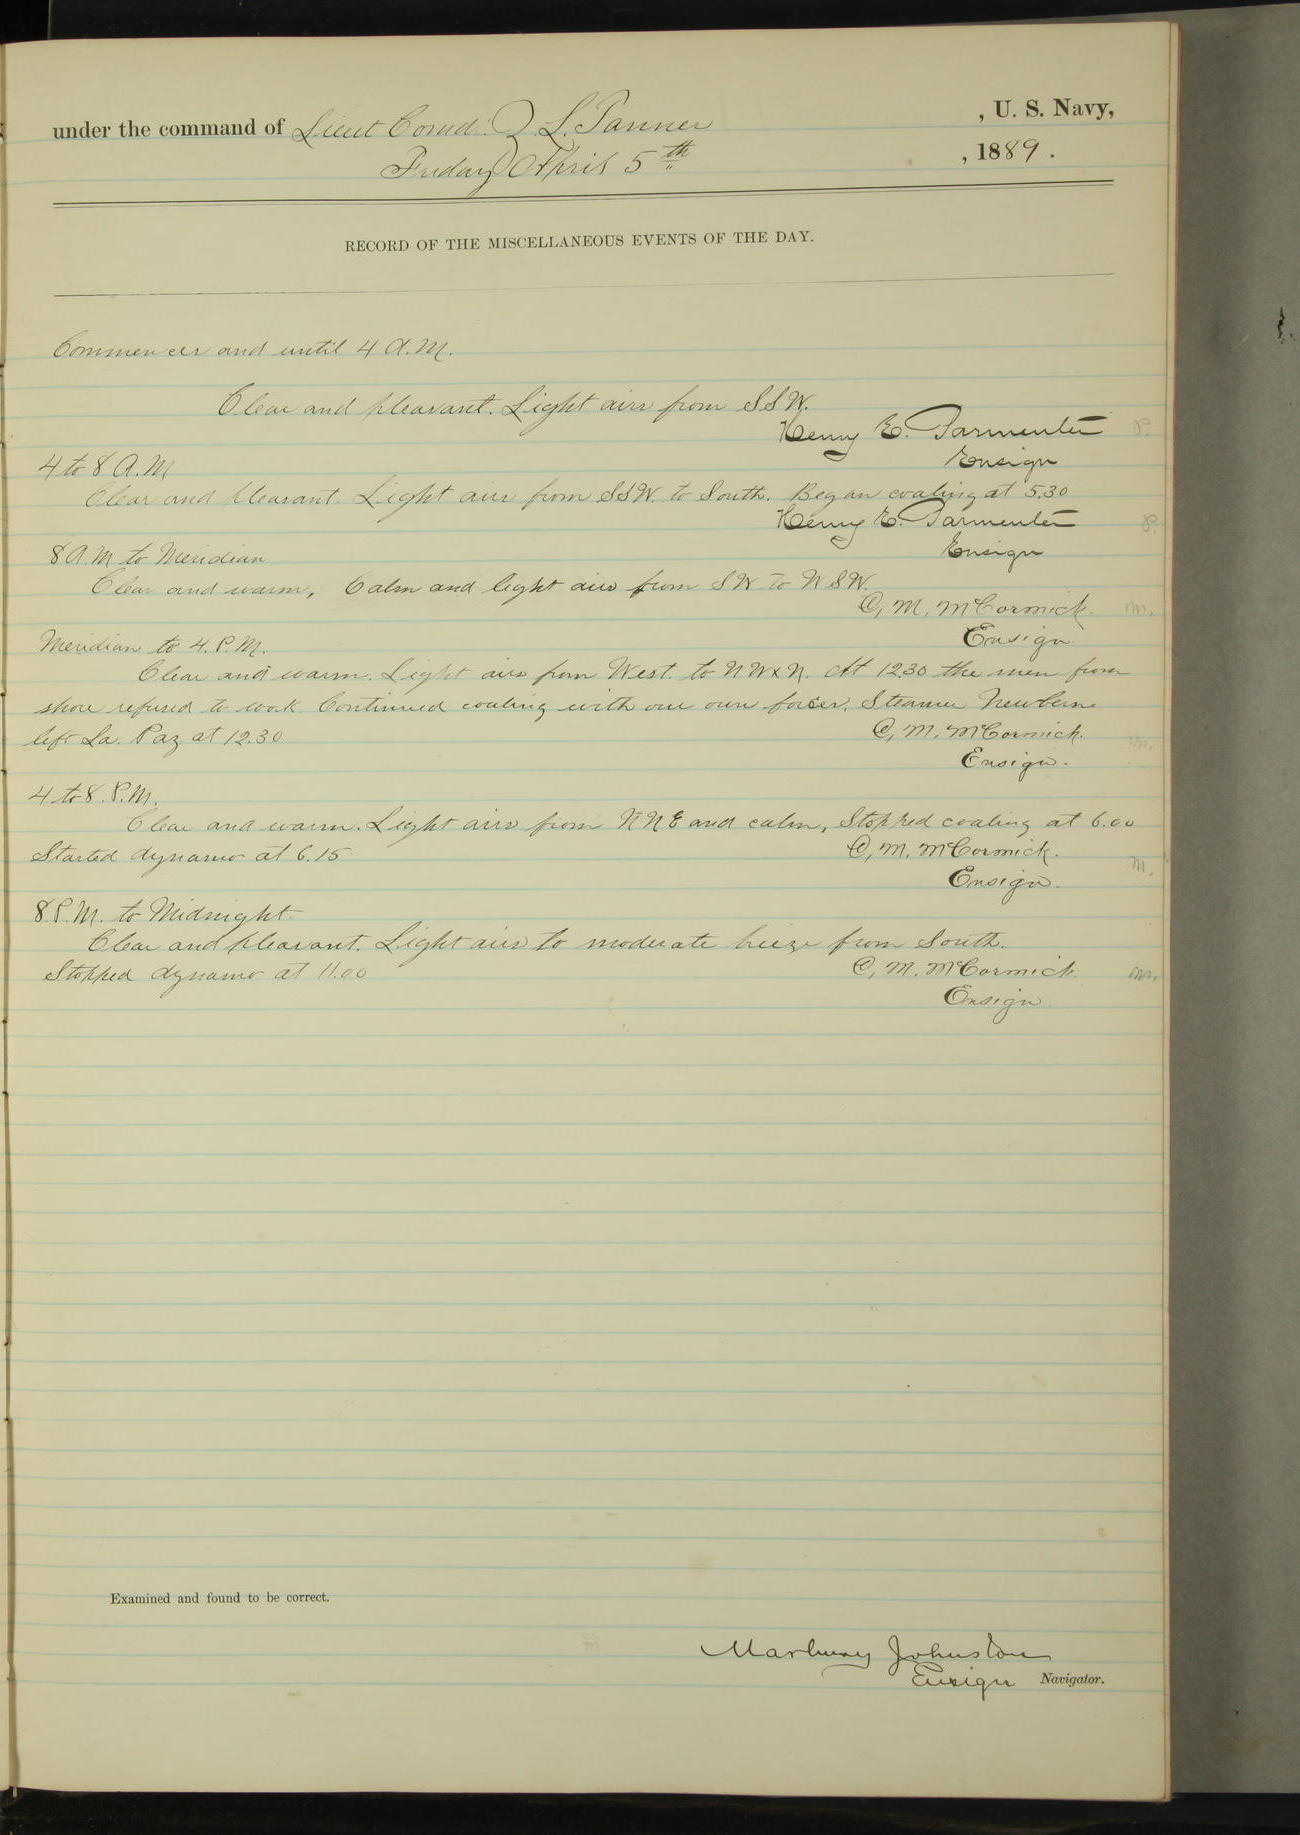 under the command of Lieut Comd. Z. L. Tanner, U. S. Navy,
Friday April 5th, 1889.
RECORD OF THE MISCELLANEOUS EVENTS OF THE DAY.
Commences and until 4 A.M.
Clear and pleasant. Light airs from SSW.
Henry E. Parmenter P.
Ensign
4 to 8 A.M
Clear and pleasant. Light airs from SSW. to South. Began coaling at 5.30
Henry E. Parmenter P.
Ensign
8 A.M to Meridian
Clear and warm, Calm and light airs from SW to WSW.
C, M, McCormick. m.
Ensign
Meridian to 4. P.M.
Clear and warm. Light airs from West. to NWxN. At 12.30 the men from
shore refused to work. Continued coaling with our own forces. Steamer Newbern
left La. Paz at 12.30
C, M. McCormick. m.
Ensign.
4 to 8. P.M.
Clear and warm. Light airs from NNE and calm, Stopped coaling at 6.00
Started dynamo at 6.15
C, M. McCormick. m.
Ensign.
8 P.M. to Midnight.
Clear and pleasant. Light airs to moderate breeze from South.
Stopped dynamo at 11.00
C, M. McCormick. m.
Ensign.
Examined and found to be correct.
Marbury Johnston
Ensign Navigator.